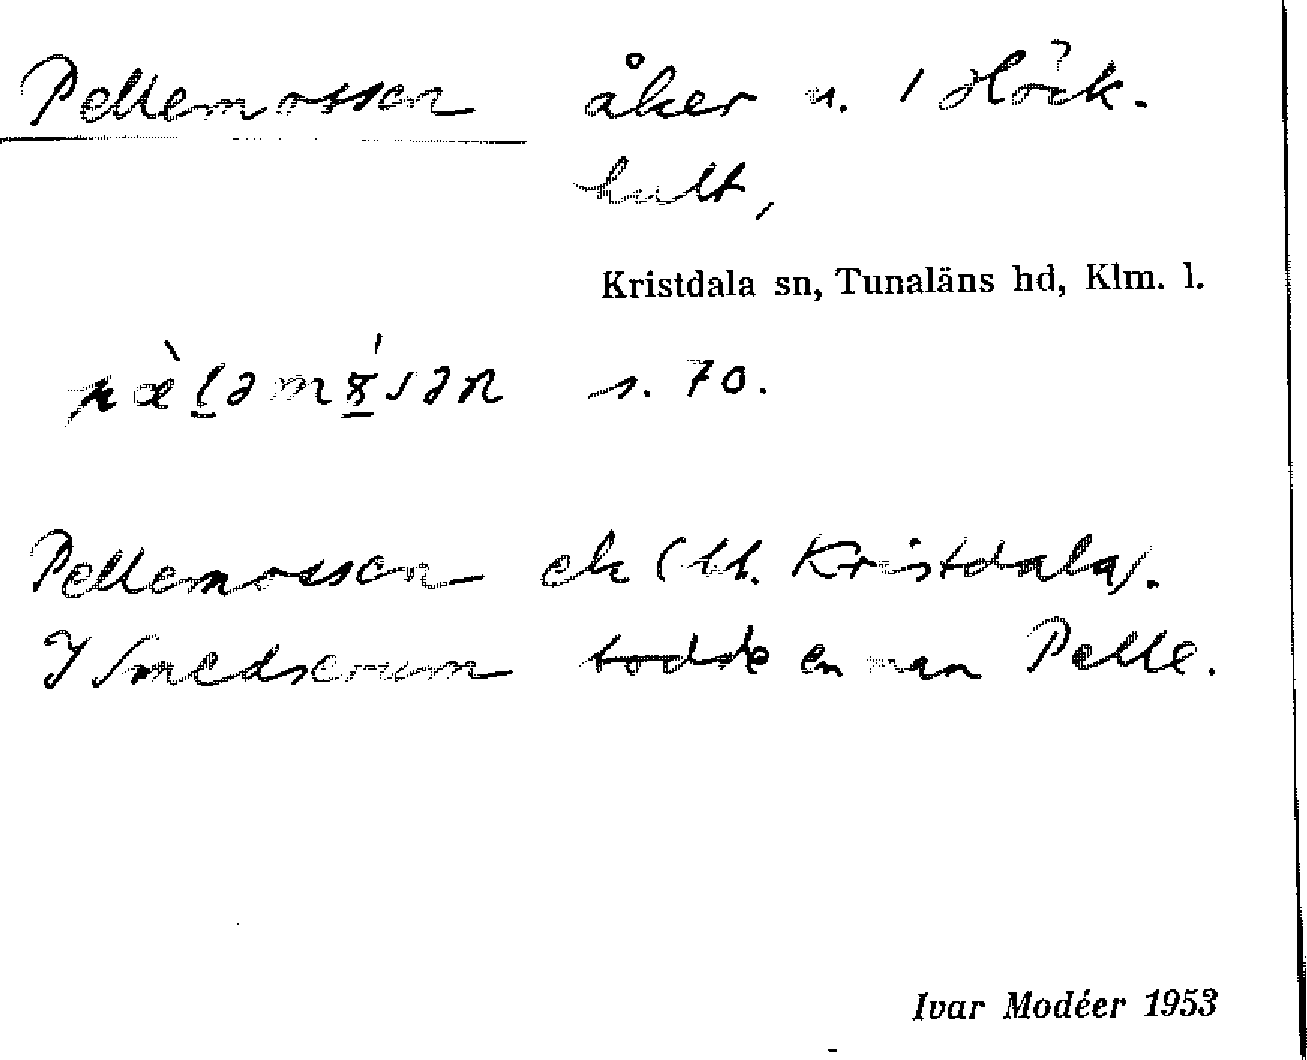 Pellemossen åker n. 1 Höck-
hult,
Kristdala sn, Tunaläns hd, Klm. l.
s. 70.
Pellemossen ek (bl. Kristdala).
I Smedserum bodde en man Pelle.
Ivar Modéer 1953